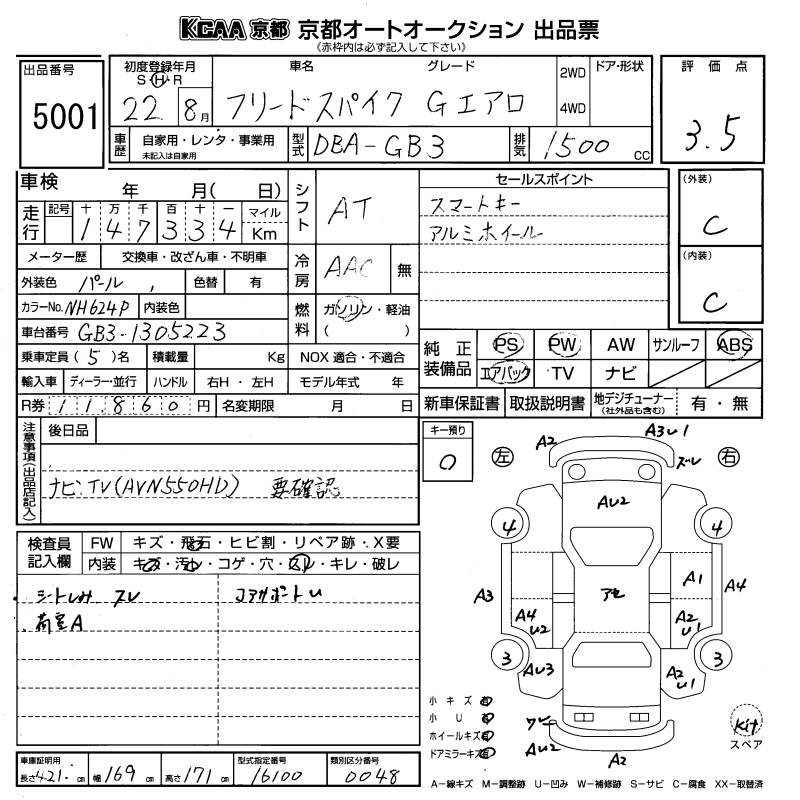 KCAA 京都 京都オートオークション 出品票
(赤枠内は必ず記入して下さい)
出品番号
5001
初度登録年月
S H R
22. 8月
車名
グレード
フリードスパイク Gエアロ
2WD
4WD
ドア・形状
評価点
3.5
車歴
自家用・レンタ・事業用
未記入は自家用
型式
DBA-GB3
排気
1500 cc
車検 年 月( 日)
走行
記号 十 万 千 百 十 一 マイル
1 4 7 3 3 4 Km
メーター歴 交換車・改ざん車・不明車
外装色 パール , 色替 有
カラーNo. NH624P 内装色
車台番号 GB3-1305223
乗車定員 ( 5 )名 積載量 Kg
輸入車 ディーラー・並行 ハンドル 右H ・ 左H
R券 11,860 円 名変期限 月 日
シフト
AT
冷房
AAC 無
燃料
ガソリン・軽油
( )
NOX 適合・不適合
モデル年式 年
セールスポイント
スマートキー
アルミホイール
(外装)
C
(内装)
C
純正装備品
PS PW AW サンルーフ ABS
エアバック TV ナビ
新車保証書 取扱説明書 地デジチューナー
(社外品も含む)
有 ・ 無
注意事項(出品店記入)
後日品
ナビ、TV(AVN550HD) 要確認
キー預り
0
検査員記入欄
FW キズ・飛石・ヒビ割・リペア跡・X要
内装 キズ・汚レ・コゲ・穴・スレ・キレ・破レ
シートしみ スレ
荷室A
コアサポートU
左
右
A2
A3U1
ズレ
AU2
4
4
A3
A4
U2
アセ
A1
A2
U1
A4
3
3
AU3
A2
U1
ワレ
AU2
A2
小キズ 有
小U 有
ホイールキズ 有
ドアミラーキズ 有
Kit
スペア
車庫証明用
長さ 421. cm 幅 169 cm 高さ 171 cm
型式指定番号
16100
類別区分番号
0048
A―線キズ M―調整跡 U―凹み W―補修跡 S―サビ C―腐食 XX―取替済